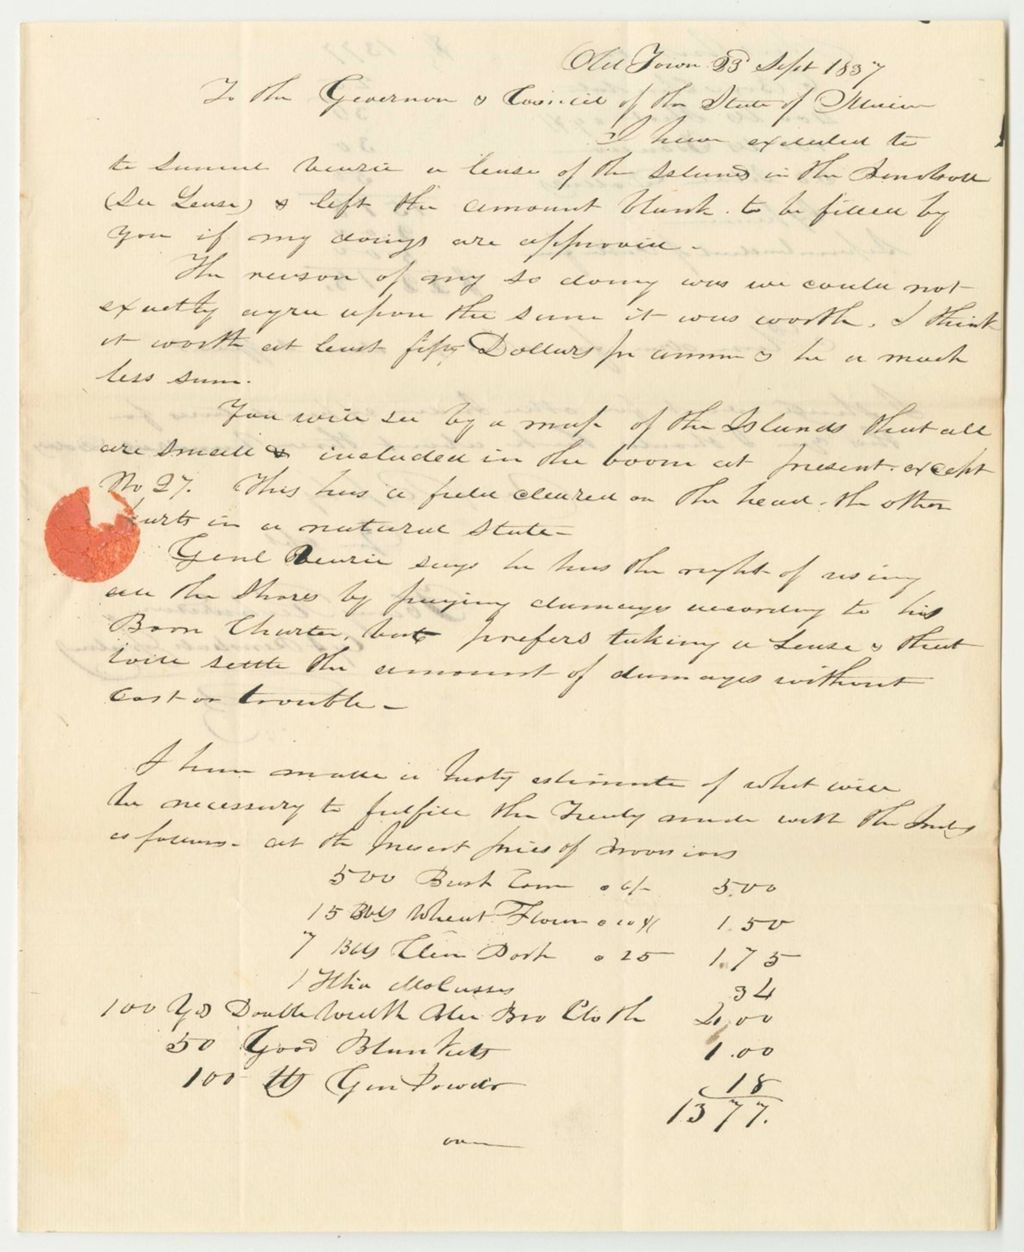 Old Town 23 Sept 1837
To the Governor & Council of the State of Maine
I have executed to
to Samuel Veazie a lease of the Islands in the Penobscott
(See Lease) & left the amount blank to be filled by
you if my doings are approvied -
The reason of my so doing was we could not
exactly agree upon the sum it was worth. I think
it worth at least fifty Dollars pr annum & he a much
less sum.
You will see by a map of the Islands that all
are small & included in the boom at present except
No 27. This has a field cleared on the head. the other
parts in a natural state -
Genl Veazie says he has the right of using
all the Shores by paying damages according to his
Boom Charter, but prefers taking a Lease & that
will settle the amount of damages without
Cost or trouble -
I have made a hasty estimate of what will
be necessary to fulfill the Treaty made with the Inds
as follows - at the present prices of provisions
500 Bush Corn a 6/- 500
15 Bbls Wheat Flour a 10 $ 1.50
7 Bbls Clear Pork a 25 1.75
1 Hhd Molasses 34
100 Yds Double width Blue Bro Cloth 4,00
50 Good Blankets 1.00
100 lb Gun Powder 18
1377.
over